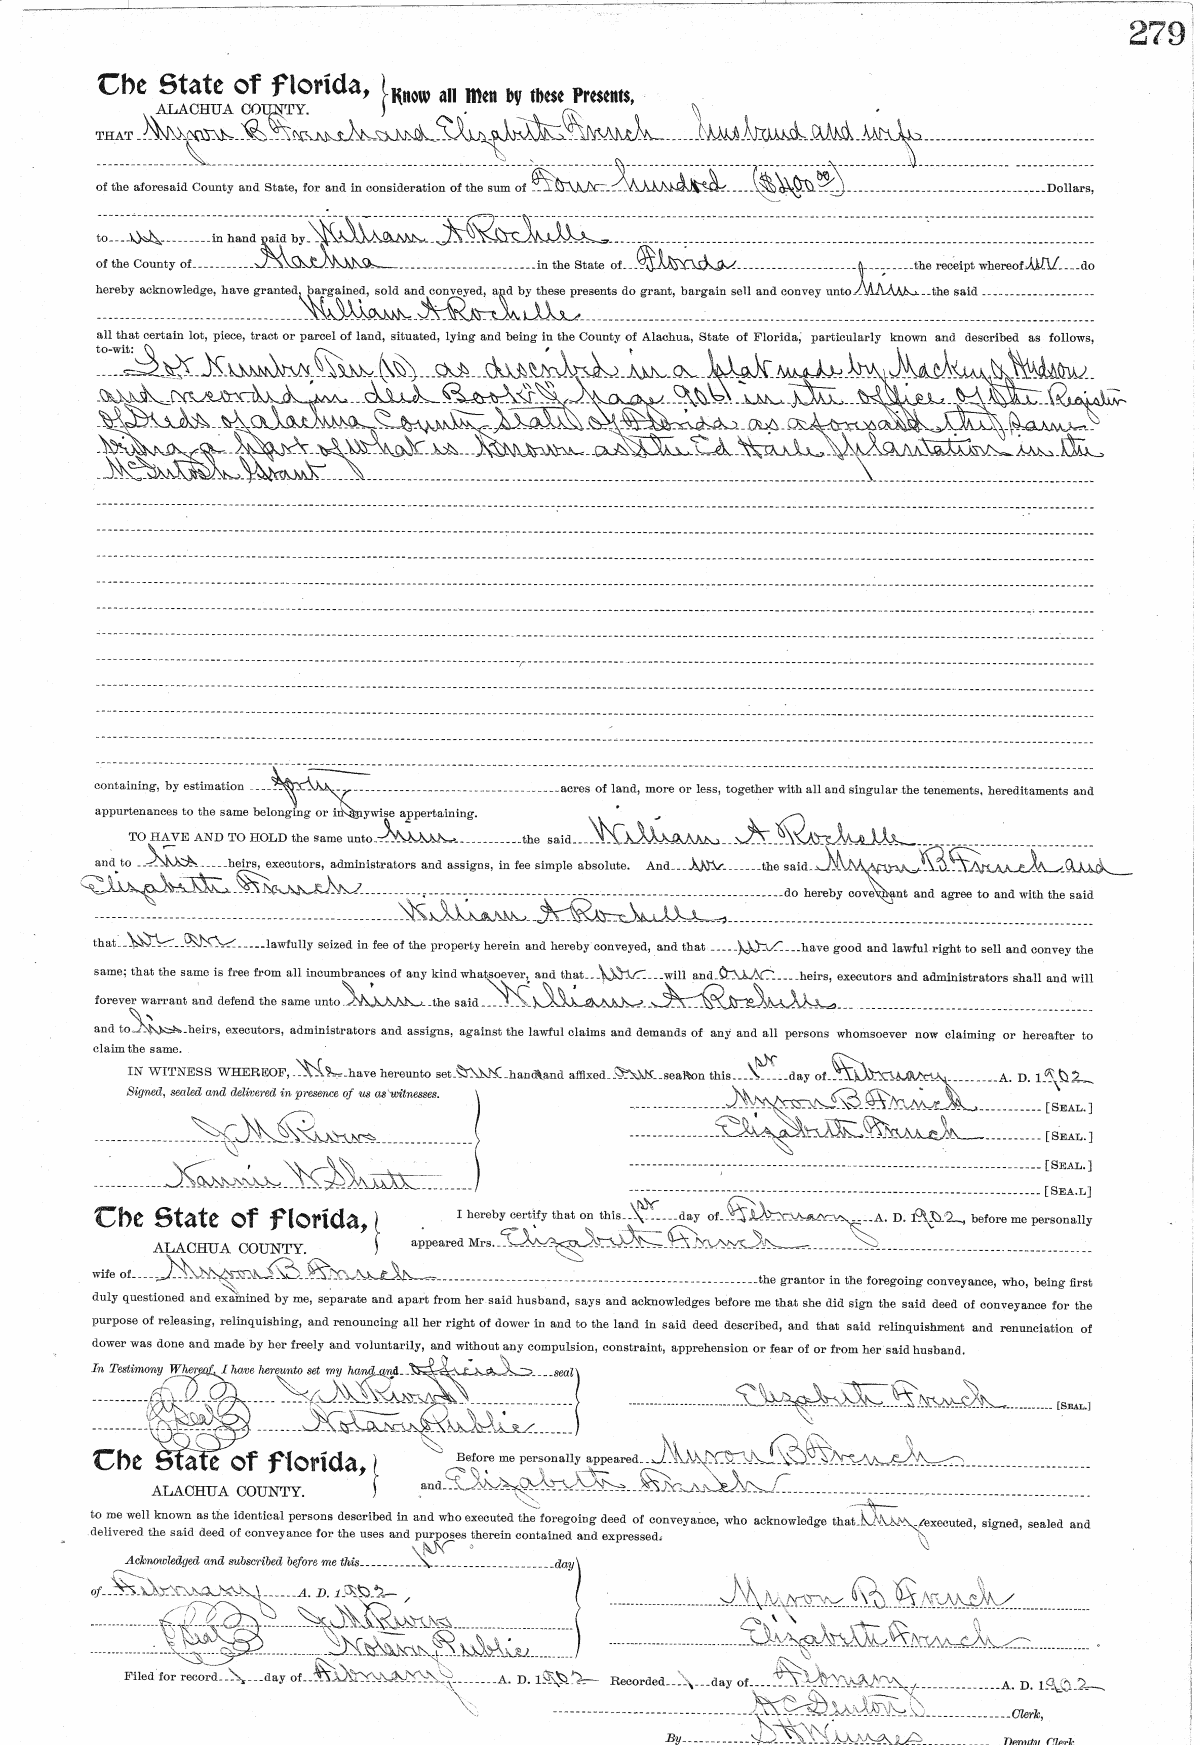 279
The State of Florida, } Know all Men by these Presents,
ALACHUA COUNTY.
THAT Myron B French and Elizabeth French husband and wife
of the aforesaid County and State, for and in consideration of the sum of Four hundred ($400 00) Dollars,
to us in hand paid by William A Rochelle
of the County of Alachua in the State of Florida the receipt whereof we do
hereby acknowledge, have granted, bargained, sold and conveyed, and by these presents do grant, bargain sell and convey unto him the said
William A Rochelle
all that certain lot, piece, tract or parcel of land, situated, lying and being in the County of Alachua, State of Florida, particularly known and described as follows,
to-wit:
Lot Number Ten (10) as described in a plat made by Mackey & Hudson
and recorded in deed Book page 906 in the office of the Register
of Deeds of Alachua County State of Florida as aforesaid the same
being a part of what is known as the Ed Haile plantation in the
McIntosh Grant
containing, by estimation forty acres of land, more or less, together with all and singular the tenements, hereditaments and
appurtenances to the same belonging or in anywise appertaining.
TO HAVE AND TO HOLD the same unto him the said William A Rochelle
and to his heirs, executors, administrators and assigns, in fee simple absolute. And we the said Myron B French and
Elizabeth French do hereby covenant and agree to and with the said
William A Rochelle
that we are lawfully seized in fee of the property herein and hereby conveyed, and that we have good and lawful right to sell and convey the
same; that the same is free from all incumbrances of any kind whatsoever, and that we will and our heirs, executors and administrators shall and will
forever warrant and defend the same unto him the said William A Rochelle
and to his heirs, executors, administrators and assigns, against the lawful claims and demands of any and all persons whomsoever now claiming or hereafter to
claim the same.
IN WITNESS WHEREOF, We have hereunto set our hand and affixed our seals on this 1st day of February A. D. 1902
Signed, sealed and delivered in presence of us as witnesses.
Myron B French [SEAL.]
J M Rivers
Elizabeth French [SEAL.]
[SEAL.]
Nannie W Shutt
[SEA.L]
The State of Florida, } I hereby certify that on this 1st day of February A. D. 1902, before me personally
ALACHUA COUNTY. appeared Mrs. Elizabeth French
wife of Myron B French the grantor in the foregoing conveyance, who, being first
duly questioned and examined by me, separate and apart from her said husband, says and acknowledges before me that she did sign the said deed of conveyance for the
purpose of releasing, relinquishing, and renouncing all her right of dower in and to the land in said deed described, and that said relinquishment and renunciation of
dower was done and made by her freely and voluntarily, and without any compulsion, constraint, apprehension or fear of or from her said husband.
In Testimony Whereof, I have hereunto set my hand and official seal
J M Rivers Elizabeth French [SEAL.]
Seal Notary Public
The State of Florida, } Before me personally appeared Myron B French
ALACHUA COUNTY. and Elizabeth French
to me well known as the identical persons described in and who executed the foregoing deed of conveyance, who acknowledge that they executed, signed, sealed and
delivered the said deed of conveyance for the uses and purposes therein contained and expressed.
Acknowledged and subscribed before me this 1st day
of February A. D. 1902 Myron B French
J M Rivers
Seal Notary Public Elizabeth French
Filed for record 1 day of February A. D. 1902 Recorded 1 day of February A. D. 1902
H C Denton Clerk,
By S H Wienges Deputy Clerk